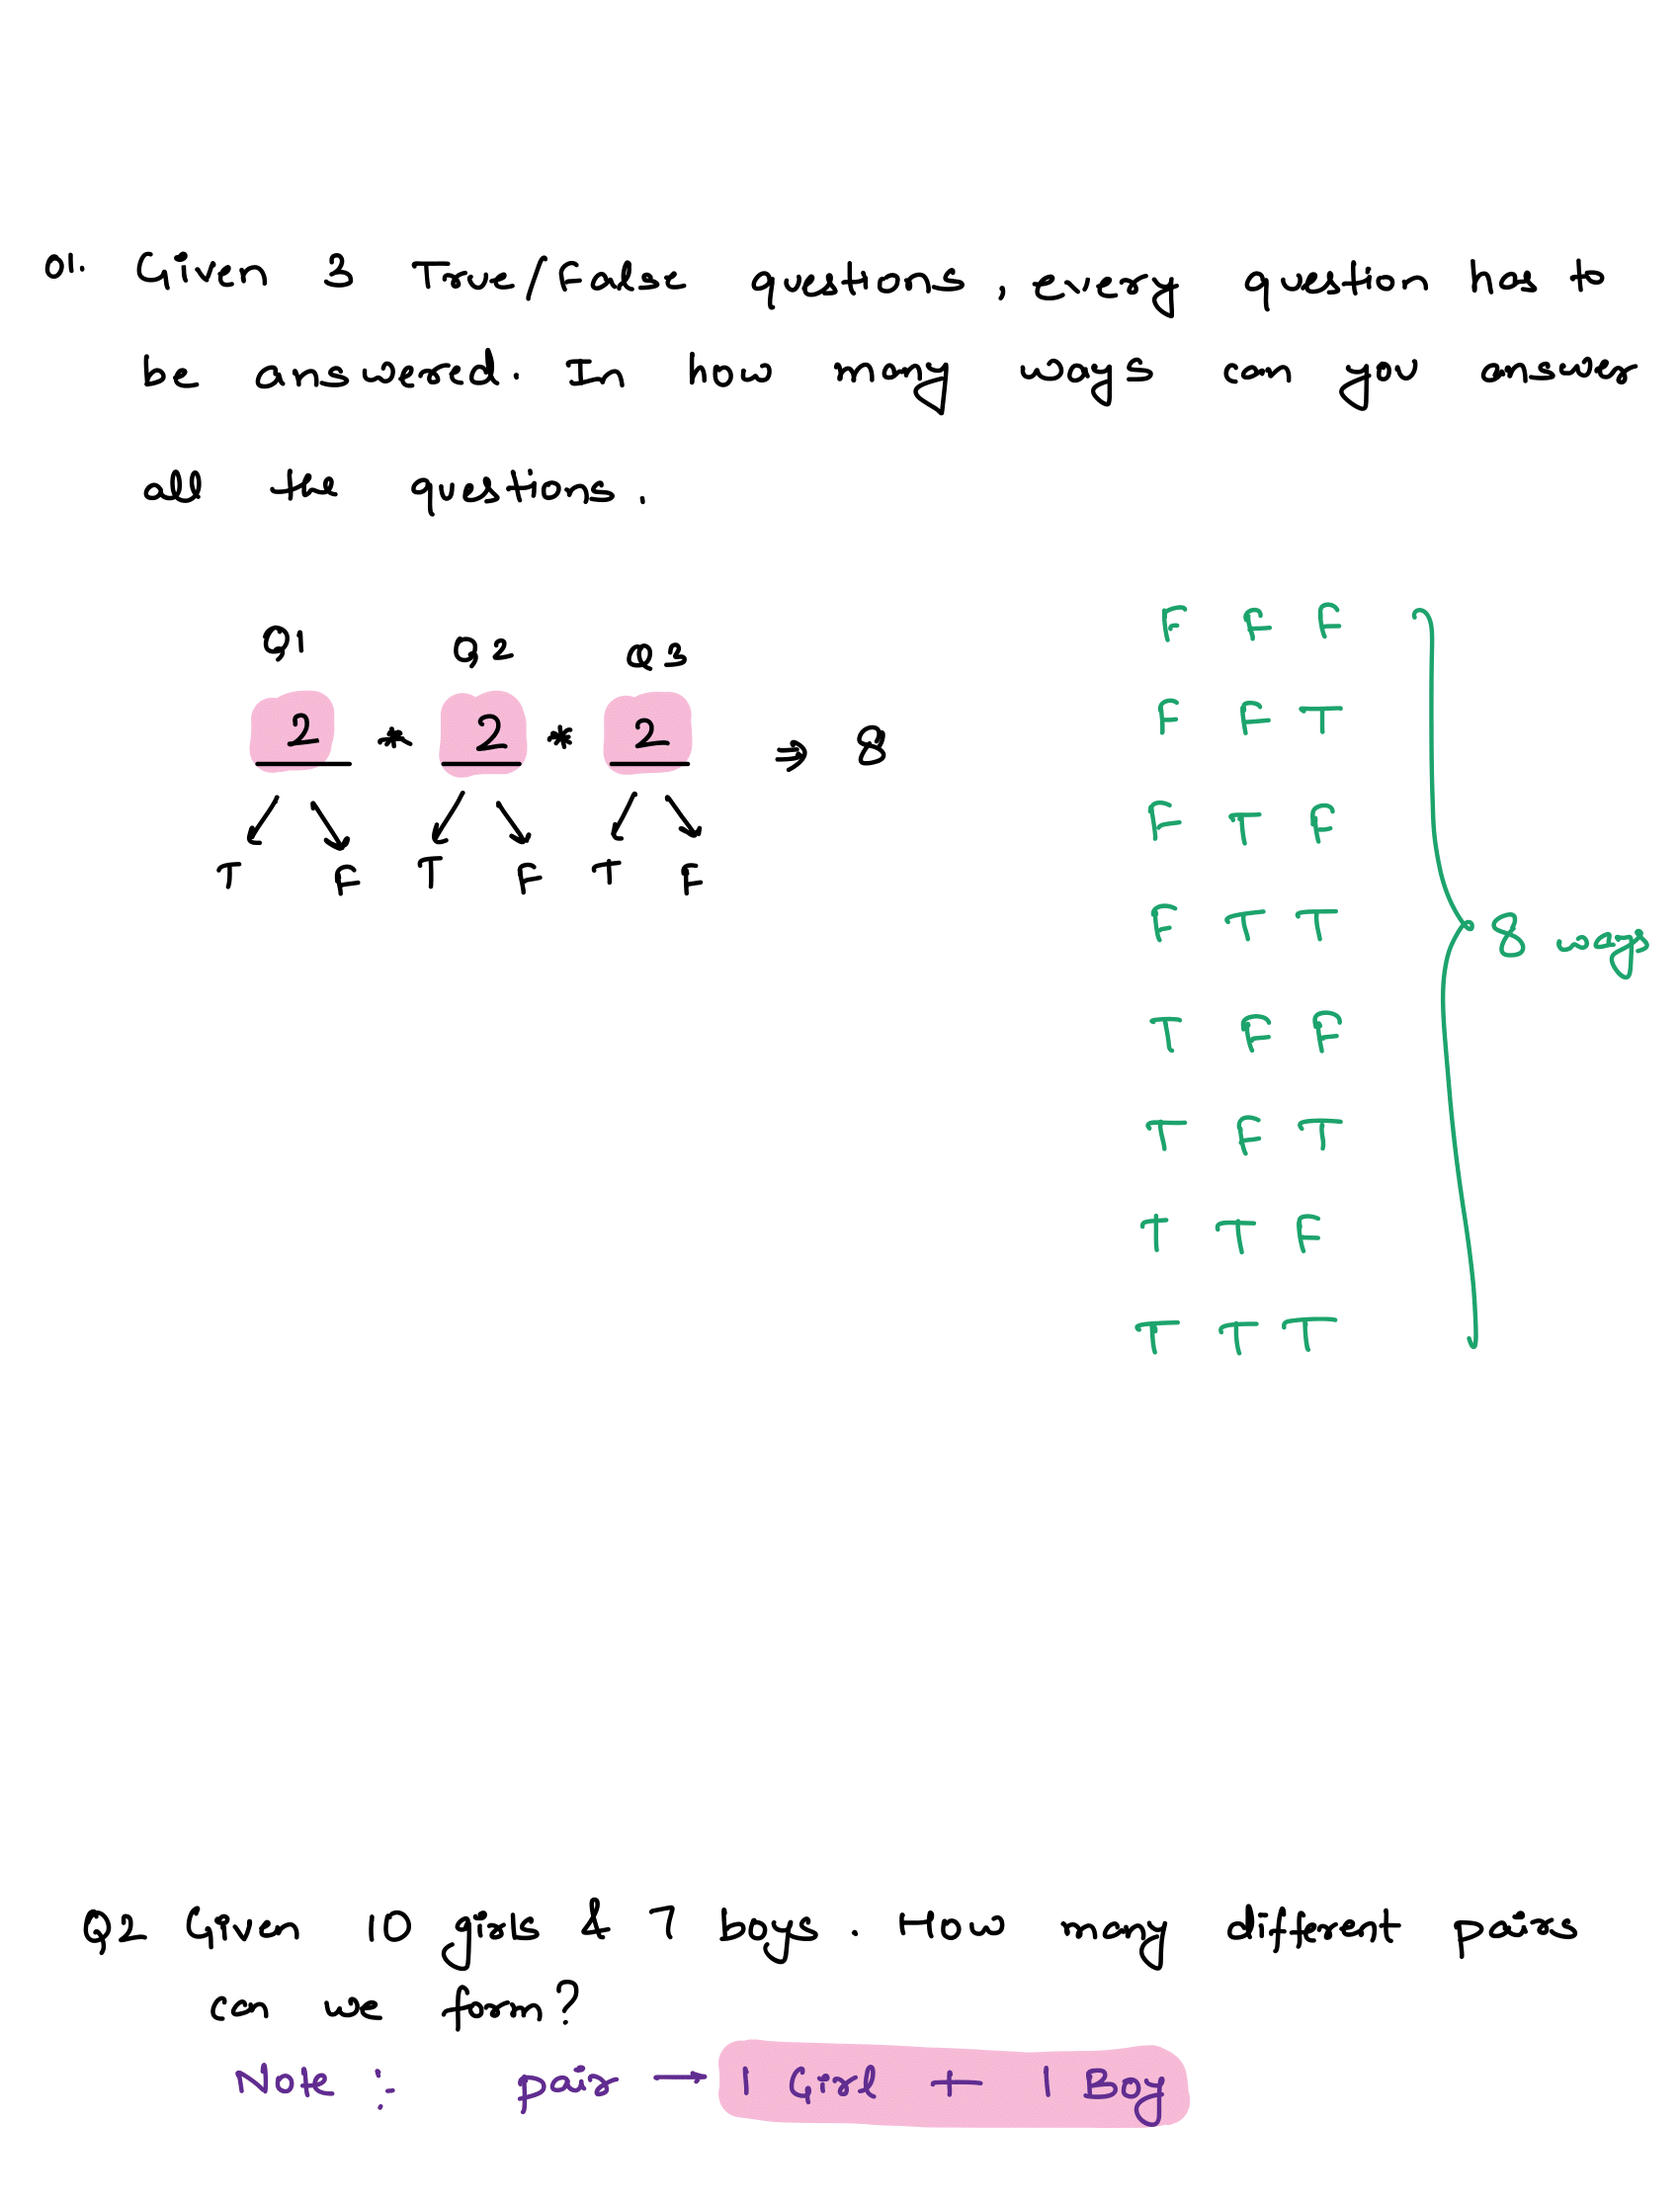 01. Given 3 True/False questions, every question has to
be answered. In how many ways can you answer
all the questions.
Q1 Q2 Q3
2 * 2 * 2 ⇒ 8
T F T F T F
F F F
F F T
F T F
F T T
8 ways
T F F
T F T
T T F
T T T
Q2 Given 10 girls & 7 boys. How many different pairs
can we form?
Note : pair → 1 Girl + 1 Boy